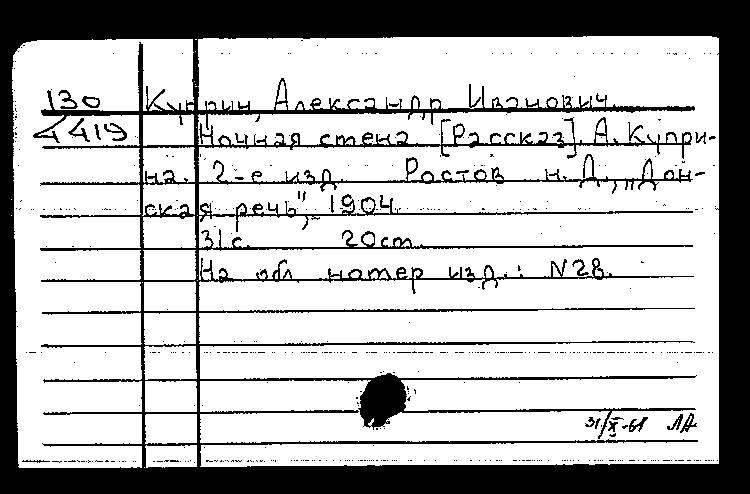 130 Куприн, Александр Иванович.
4419 Ночная стена [Рассказ]. А. Купри-
на. 2-е изд. Ростов н. Д., „Дон-
ская речь", 1904.
31с. 20ст.
На обл. натер изд.: N28.
31/XI-61 ЛА